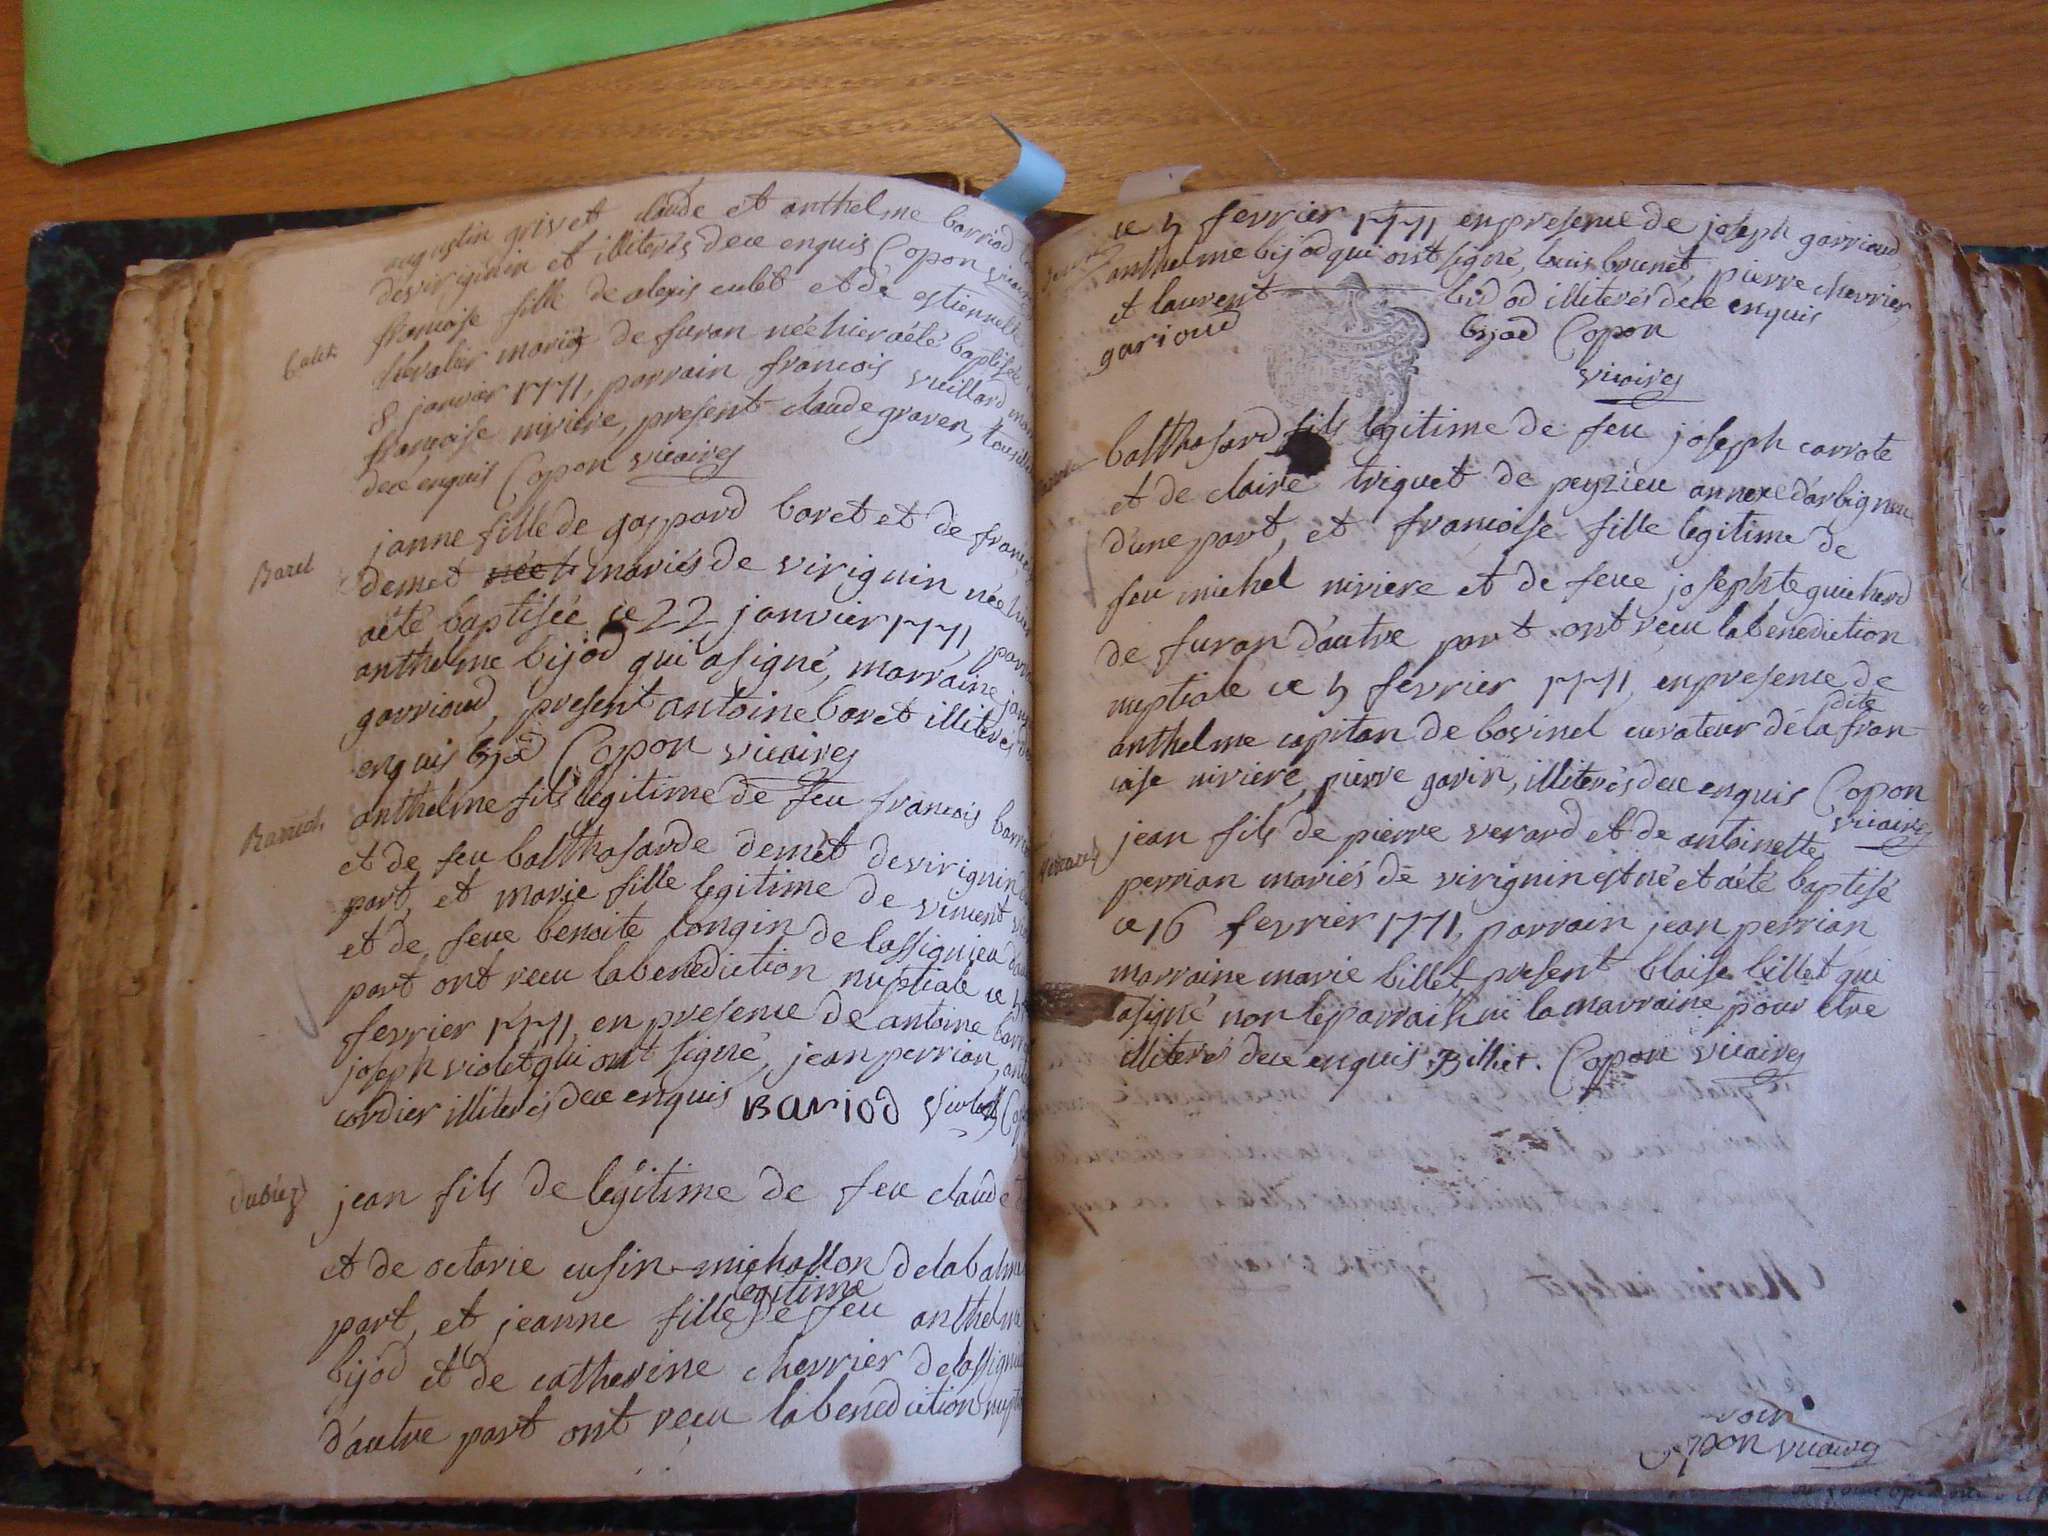 augustin grivet claude et anthelme barriod
de virignin et illiterés de ce enquis Copon vicaire
françoise fille de alexis culet et de estiennette
Culet
chevalier mariés de furan née hier a été baptisée
8 janvier 1771, parrain francois vuillard
françoise riviere, present claude graver, tous
de ce enquis Copon vicaires
janne fille de gaspard baret et de
Baret
demet mariés de virignin née hier
a été baptisée ce 22 janvier 1771,
anthelme bijod qui a signé, marraine
garrioud, present antoine baret illiterés
enquis bijod Copon vicaires
anthelme fils legitime de feu francois
et de feu balthasarde demet de virignin
part, et marie fille legitime de vincent
et de feue benoite longin de lassignieu
part ont recu la benediction nuptiale ce 5
fevrier 1771, en presence de antoine
joseph violet qui ont signé, jean perrian,
cordier illiterés de ce enquis Bariod Violet
jean fils de legitime de feu claude
et de octavie cusin michallon de la balme
legitime
part, et jeanne fille de feu anthelme
bijod et de catherine chervier de lassignieu
d'autre part ont recu la benediction
ce 5 fevrier 1771 en presence de joseph garrioud,
anthelme bijod qui ont signé, louis brunet, pierre chervier,
et laurent bidod illiterés de ce enquis
garioud bijod Copon
vicaires
balthasard fils legitime de feu joseph carrote
et de claire triquet de peyzieu annexe d'arbignieu
d'une part, et françoise fille legitime de
feu michel riviere et de feue josephte guicherd
de furan d'autre part ont recu la benediction
nuptiale ce 5 fevrier 1771, en presence de
dite
anthelme capitan de bovinel curateur de la fran
coise riviere, pierre gavin, illiterés de ce enquis Copon
vicaires
jean fils de pierre verard et de antoinette
perrian mariés de virignin est né et a été baptisé
ce 16 fevrier 1771, parrain jean perrian
marraine marie billet, present blaise billet qui
a signé non le parrain ni la marraine pour etre
illiterés de ce enquis Billiet. Copon vicaires
Copon vicaires